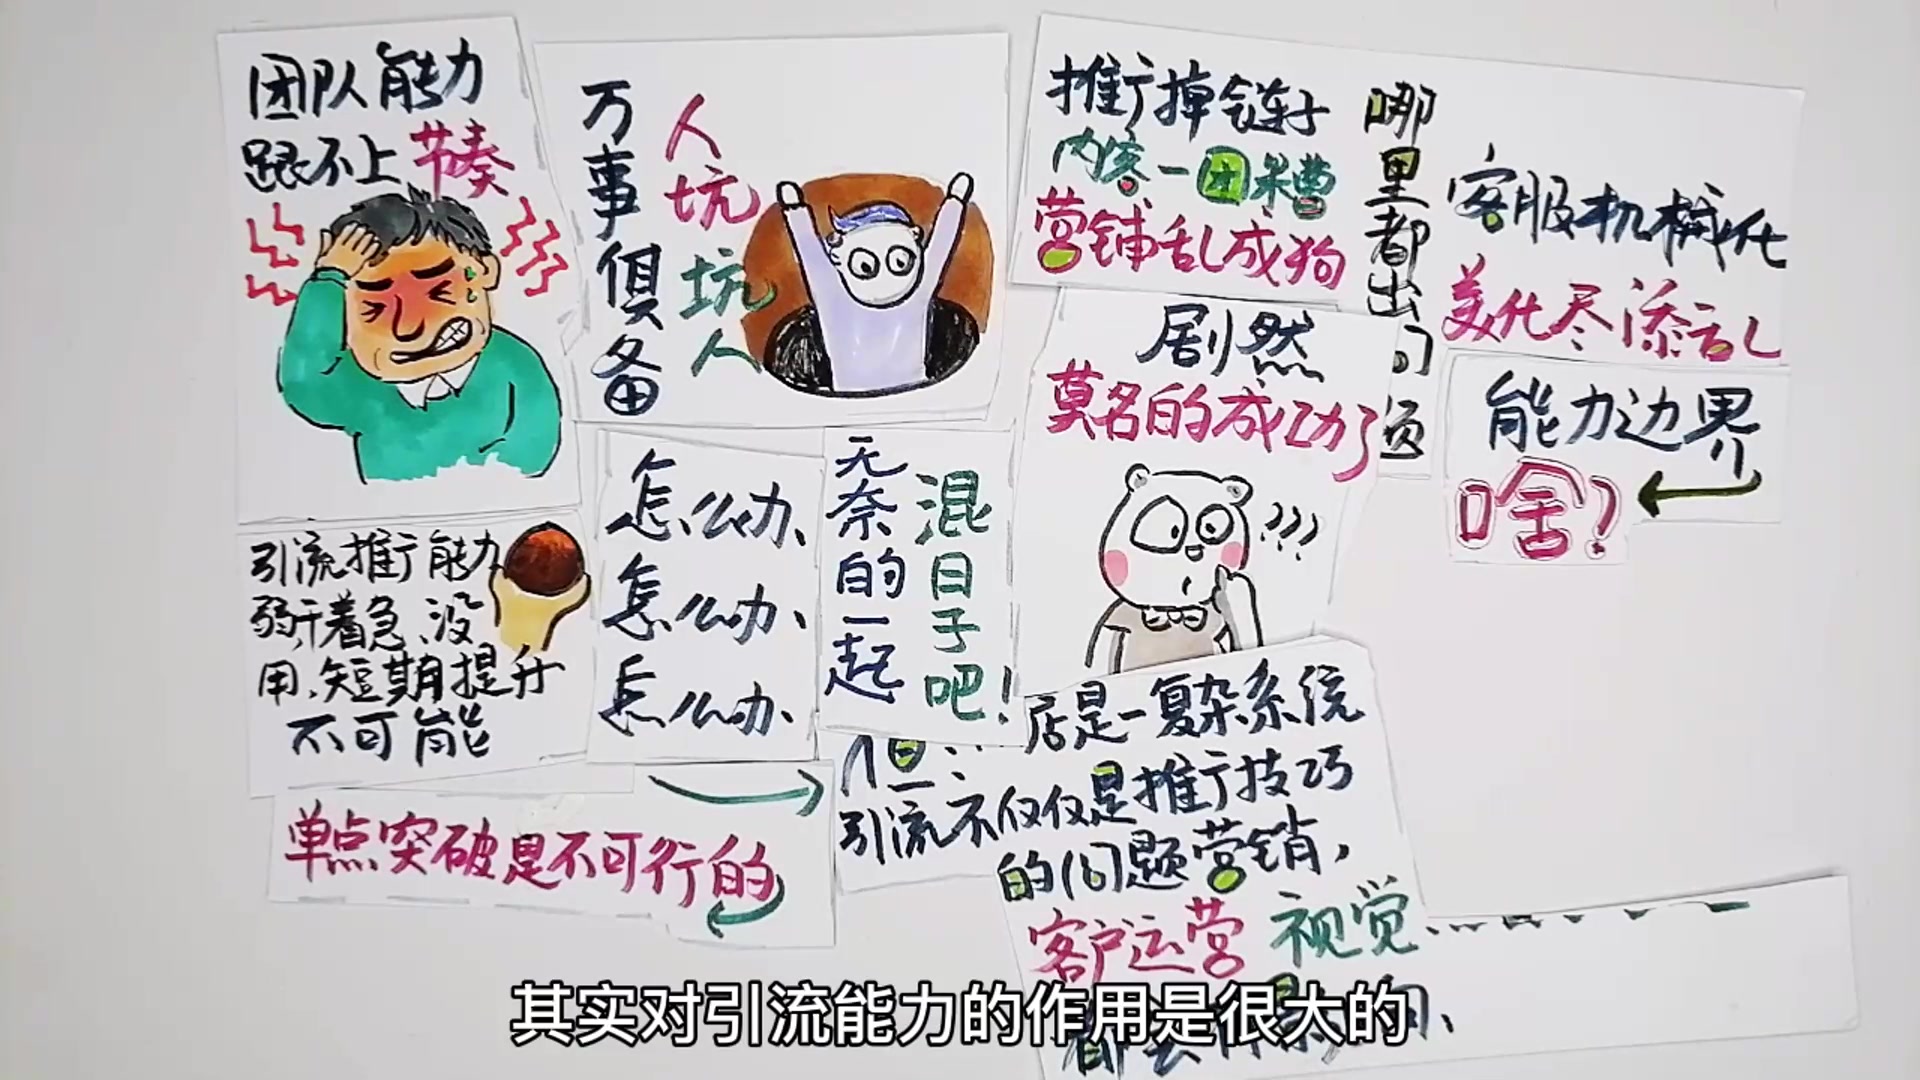 团队能力
跟不上节奏
万事俱备
人坑
坑人
推广掉链子
内容一团糟
营铺乱成狗
哪里都出问题
客服机械化
美化尽添乱
剧然
莫名的成功了
能力边界
啥？
引流推广能力
弱干着急、没
用、短期提升
不可能
怎么办、
怎么办、
怎么办、
无奈的一起
混日子吧！
单点突破是不可行的
但
店是一复杂系统
引流不仅仅是推广技巧
的问题营销，
客户运营 视觉……
其实对引流能力的作用是很大的